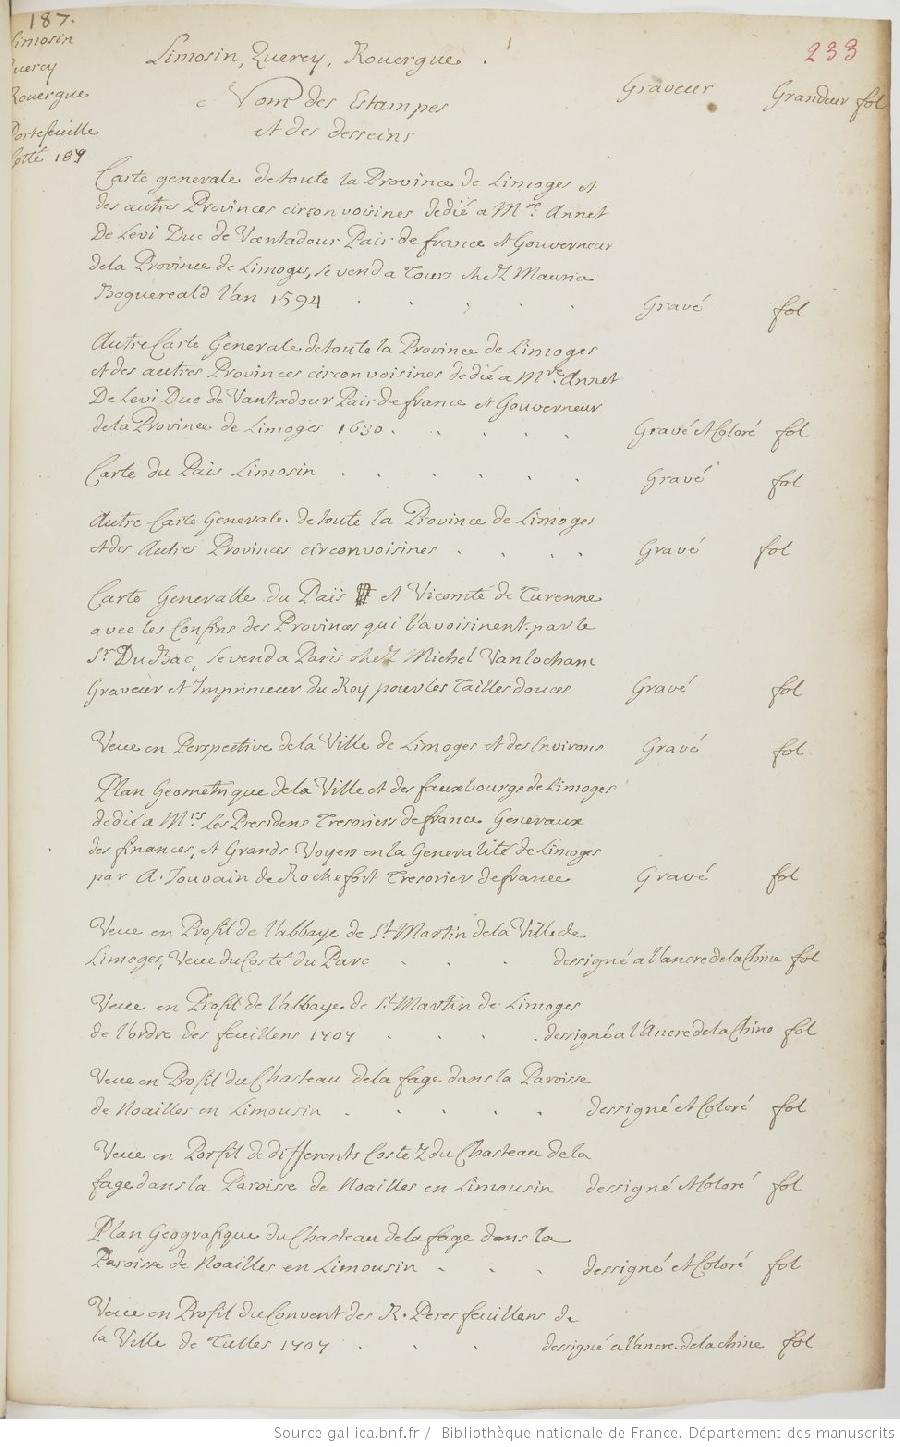 187.
Limosin
Quercy
Rouergue
Portefeuille
Cotté 189
233
Limosin, Quercy, Rouergue.
Nom des Estampes
et des desseins
Graveur
Grandeur fol
Carte generale de toute la Province de Limoges et
des autres Provinces circonvoisines dedié a Mre Annet
De Levi Duc de Vantadour Pair de france et Gouverneur
dela Province de Limoges, se vend a Tours chez Mauria
Boguereald l'an 1594 . . . . Gravé fol
Autre Carte Generale de toute la Province de Limoges
et des autres Provinces circonvoisines dedié a Mre Annet
De Levi Duc de Vantadour Pair de france et Gouverneur
de la Province de Limoges 1630 . . . . . Gravé et Coloré fol
Carte du Païs Limosin . . . . . Gravé fol
Autre Carte Generale de toute la Province de Limoges
et des Autres Provinces circonvoisines . . . . Gravé fol
Carte Generalle du Païs et Vicomté de Turenne
avec les Confins des Provinces qui l'avoisinent par le
Sr. Du Bac, se vend a Paris chez Michel Vanlocham
Graveur et Imprimeur du Roy pour les Tailles douces Gravé fol
Veue en Perspective de la Ville de Limoges et des Environs Gravé fol
Plan Geometrique de la Ville et des fauxbourgs de Limoges
dedié a Mrs les Presidens Tresoriers de france Generaux
des finances, et Grands Voyers en la Generalité de Limoges
par A. Jouvain de Rochefort Tresorier de france Gravé fol
Veue en Profil de l'abbaye de St Martin de la Ville de
Limoges, Veue du Costé du Parc . . . dessigné a l'ancre de la Chine fol
Veue en Profil de l'abbaye de St Martin de Limoges
de l'ordre des feuillens 1707 . . . . dessigné a l'Ancre de la Chine fol
Veue en Profil du Chasteau de la fage dans la Paroisse
de Noailles en Limousin . . . . . dessigné et Coloré fol
Veue en Porfil de differents Costez du Chasteau de la
fage dans la Paroisse de Noailles en Limousin dessigné et Coloré fol
Plan Geografique du Chasteau de la fage dans la
Paroisse de Noailles en Limousin . . . dessigné et Coloré fol
Veue en Profil du Convent des R. Peres feuillens de
la Ville de Tulles 1707 . . . dessigné a l'ancre de la chine fol
Source gallica.bnf.fr / Bibliothèque nationale de France. Département des manuscrits